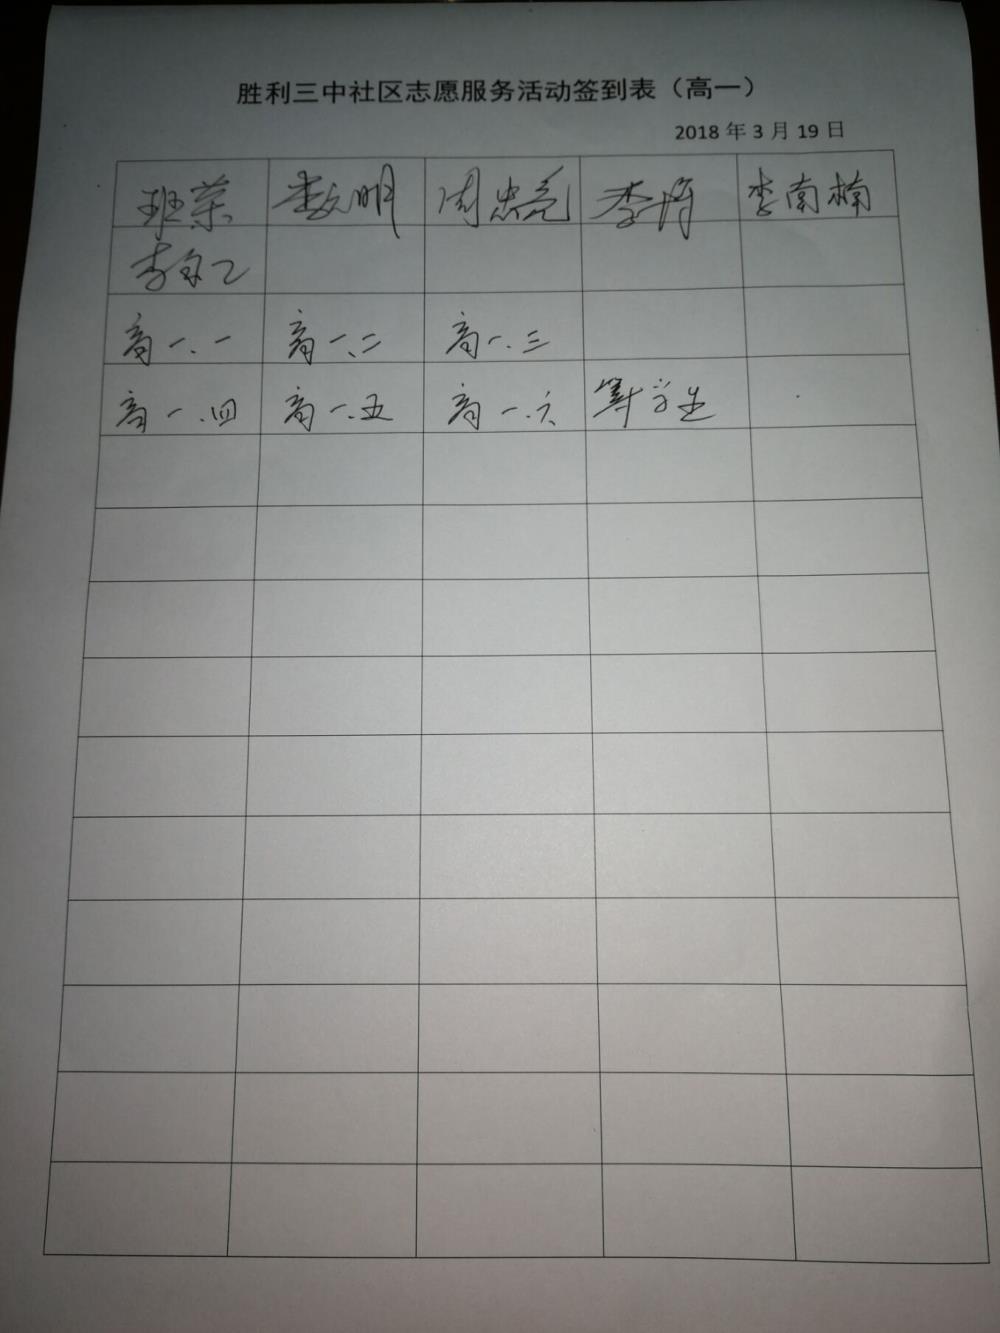 胜利三中社区志愿服务活动签到表（高一）
2018 年 3 月 19 日
班荣 娄明 周忠亮 李 李南楠
李
高一.一 高一.二 高一.三
高一.四 高一.五 高一.六 等学生